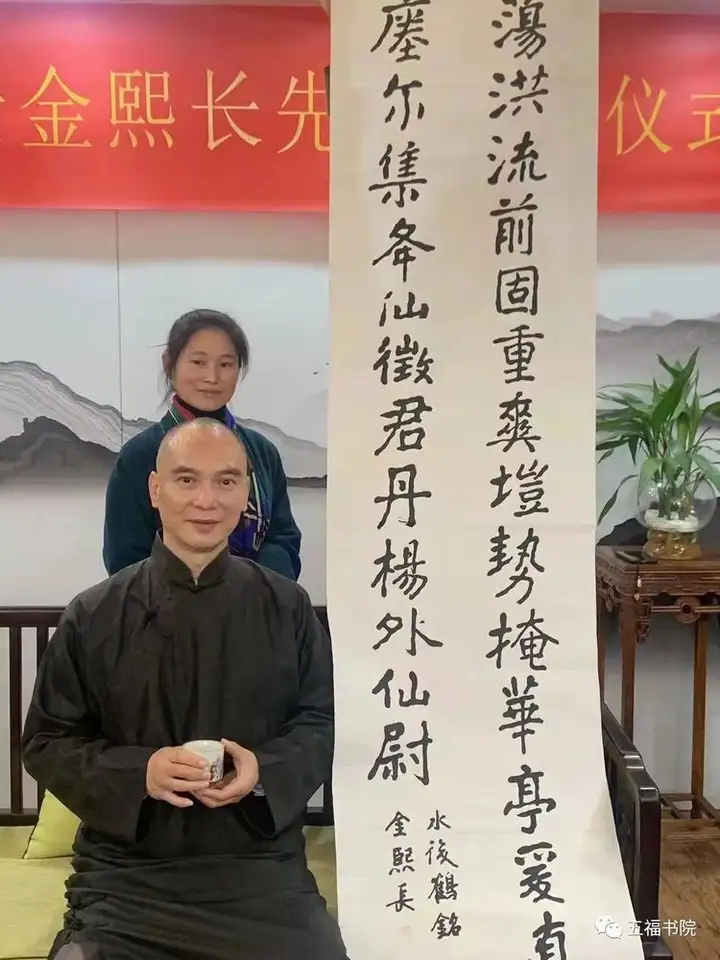 金熙长先 仪式
蕩洪流前固重爽塏勢掩華亭爰
尔集夅仙徵君丹楊外仙尉
水後鶴銘
金熙長
五福书院